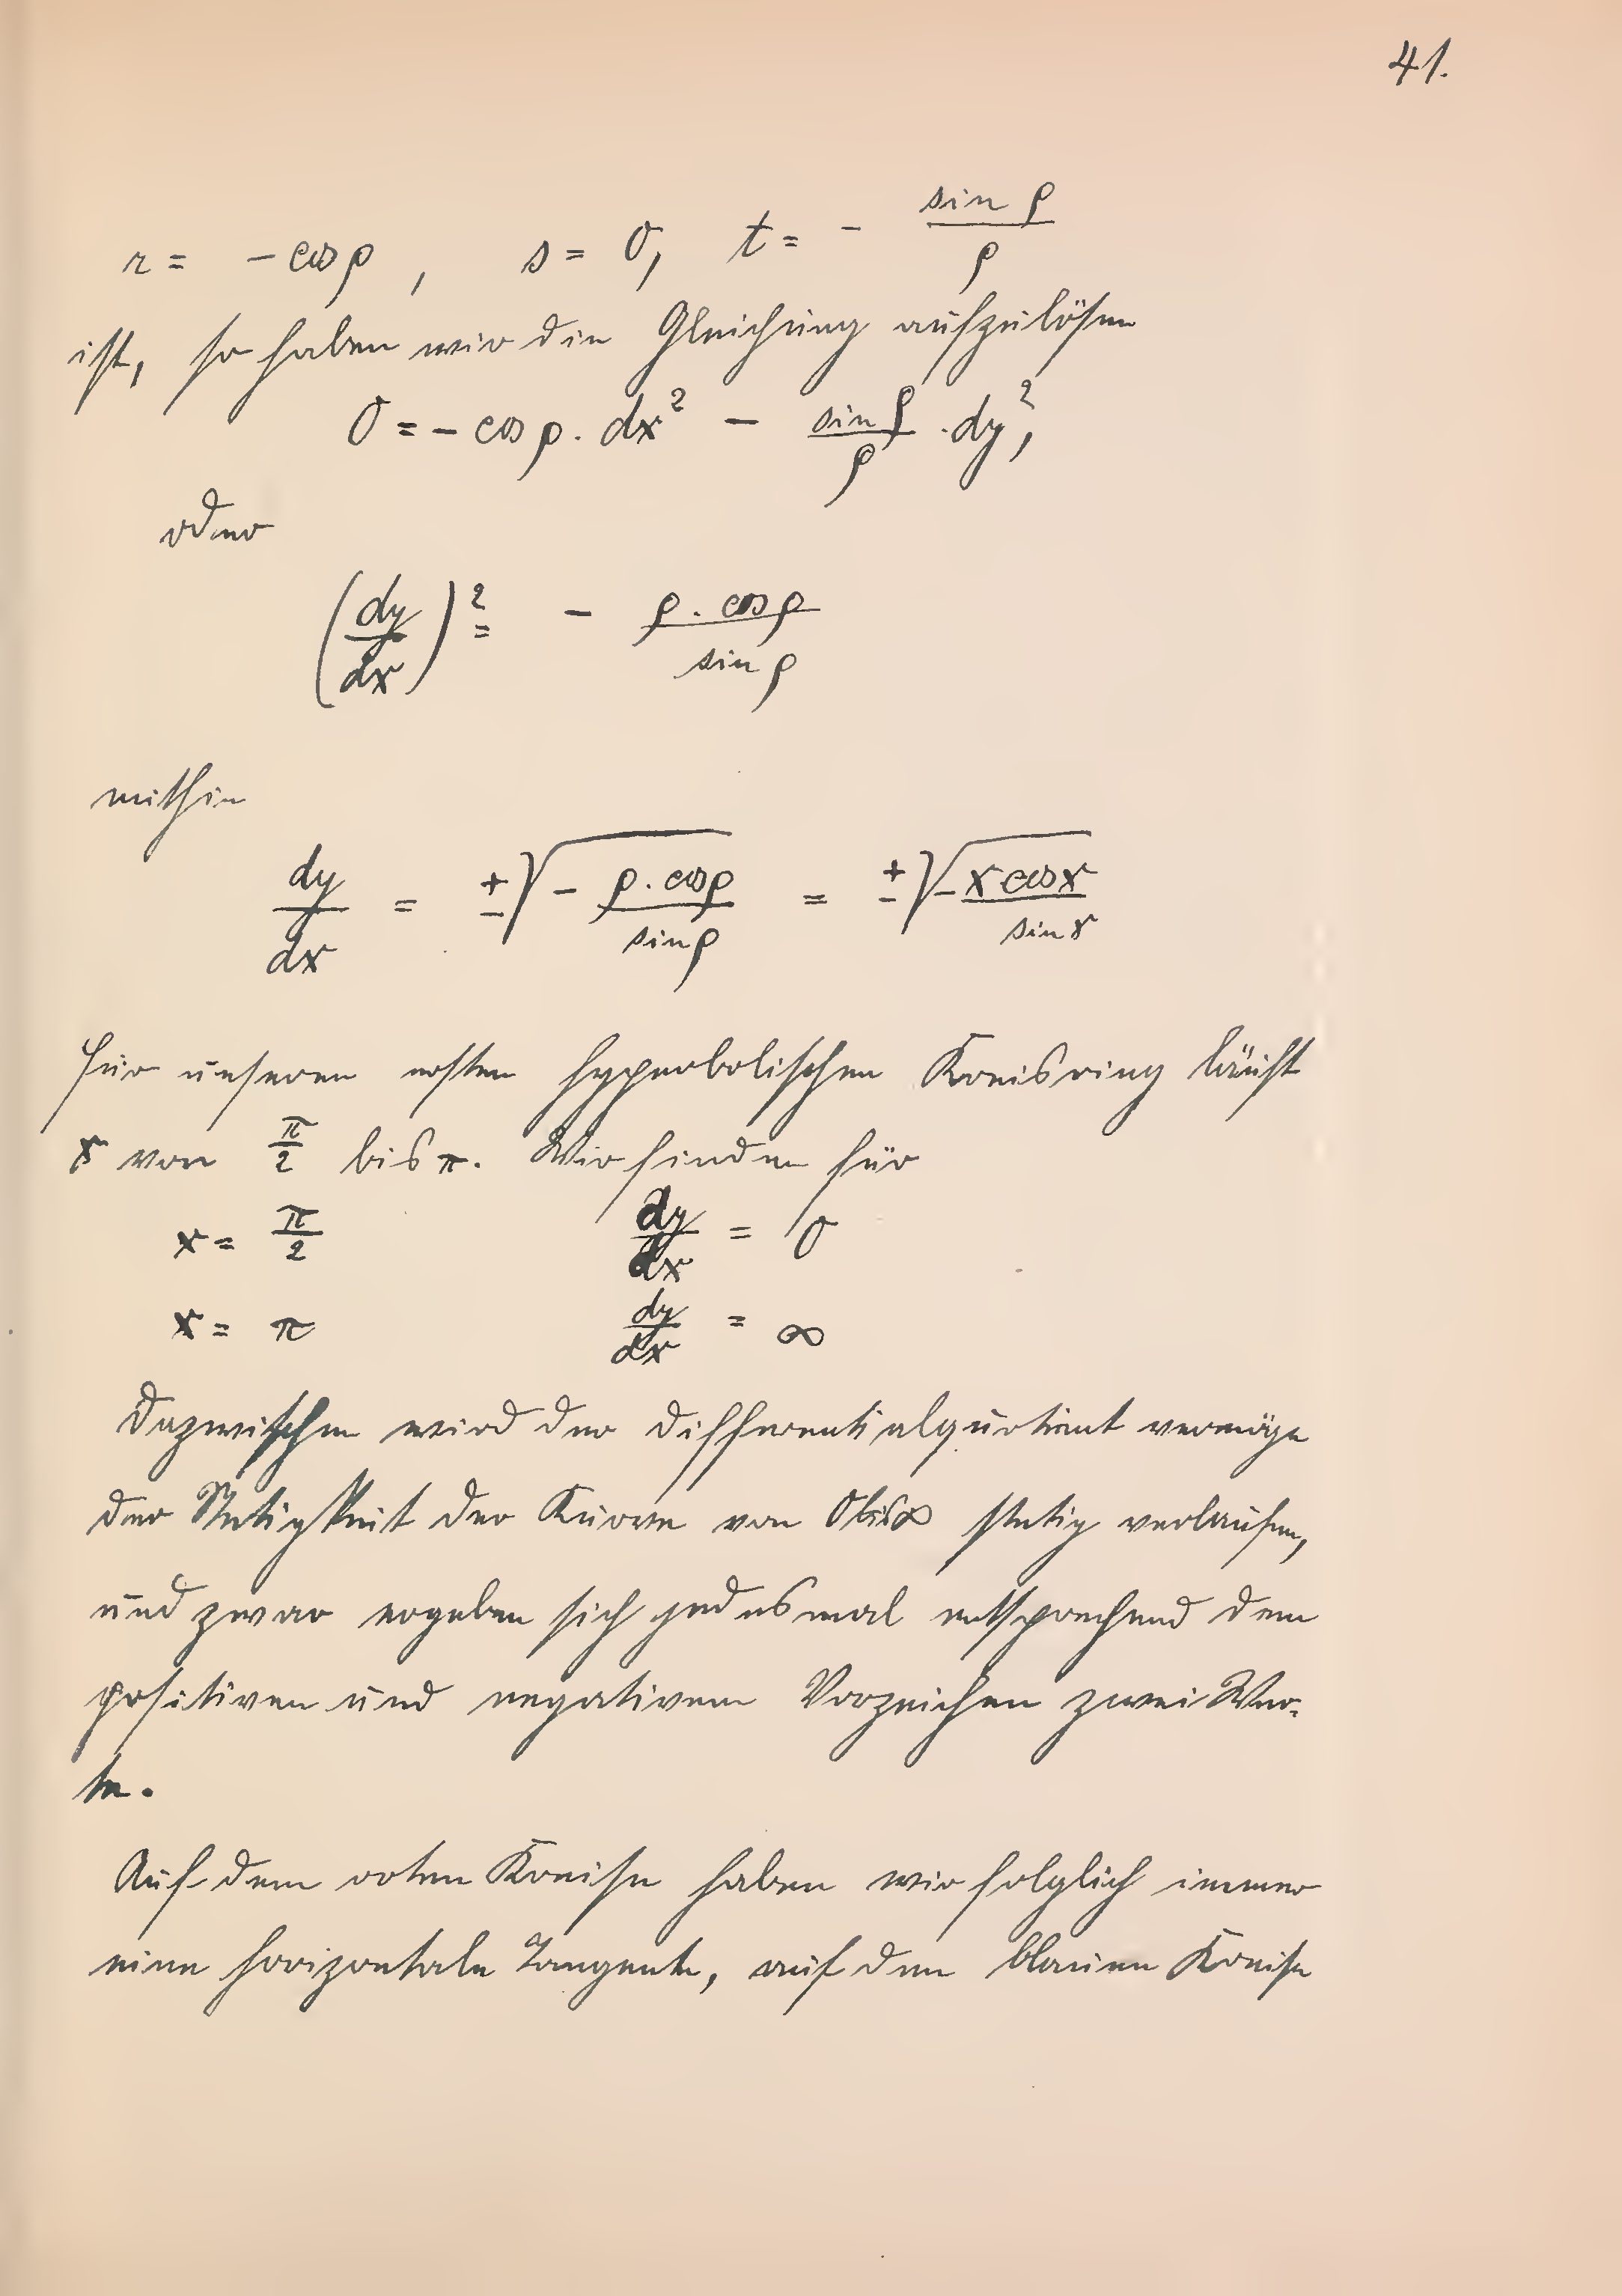 41.
r = - cos ρ , s = 0, t = - sin ρ / ρ
ist, so haben wir die Gleichung aufzulösen
0 = - cos ρ . dx² - sin ρ / ρ . dy²,
oder
(dy/dx)² = - ρ . cos ρ / sin ρ
mithin
dy/dx = ±√(- ρ . cos ρ / sin ρ) = ±√(- x cos x / sin x)
Für unseren ersten hyperbolischen Kreisring läuft
x von π/2 bis π. Wir finden für
x = π/2 dy/dx = 0
x = π dy/dx = ∞
Dazwischen wird der Differentialquotient vermöge
der Stetigkeit der Kurve von 0 bis ∞ stetig verlaufen,
und zwar ergeben sich jedesmal entsprechend dem
positiven und negativem Vorzeichen zwei Wer-
te.
Auf dem roten Kreise haben wir folglich immer
eine horizontale Tangente, auf dem blauen Kreise